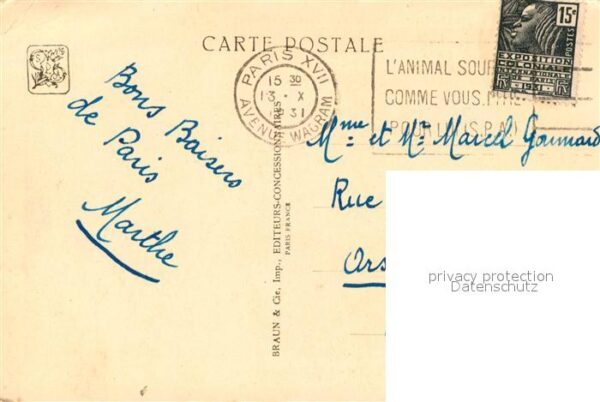 CARTE POSTALE
15c
POSTES
EXPOSITION
1931
PARIS XVII
15 30
13 - X
31
AVENUE WAGRAM
L'ANIMAL
COMME VOUS.
Bons Baisers
de Paris
Marthe
BRAUN & Cie, Imp., EDITEURS-CONCESSIONNAIRES
PARIS FRANCE
Mme et Mr Marcel
Rue
Ors
privacy protection
Datenschutz